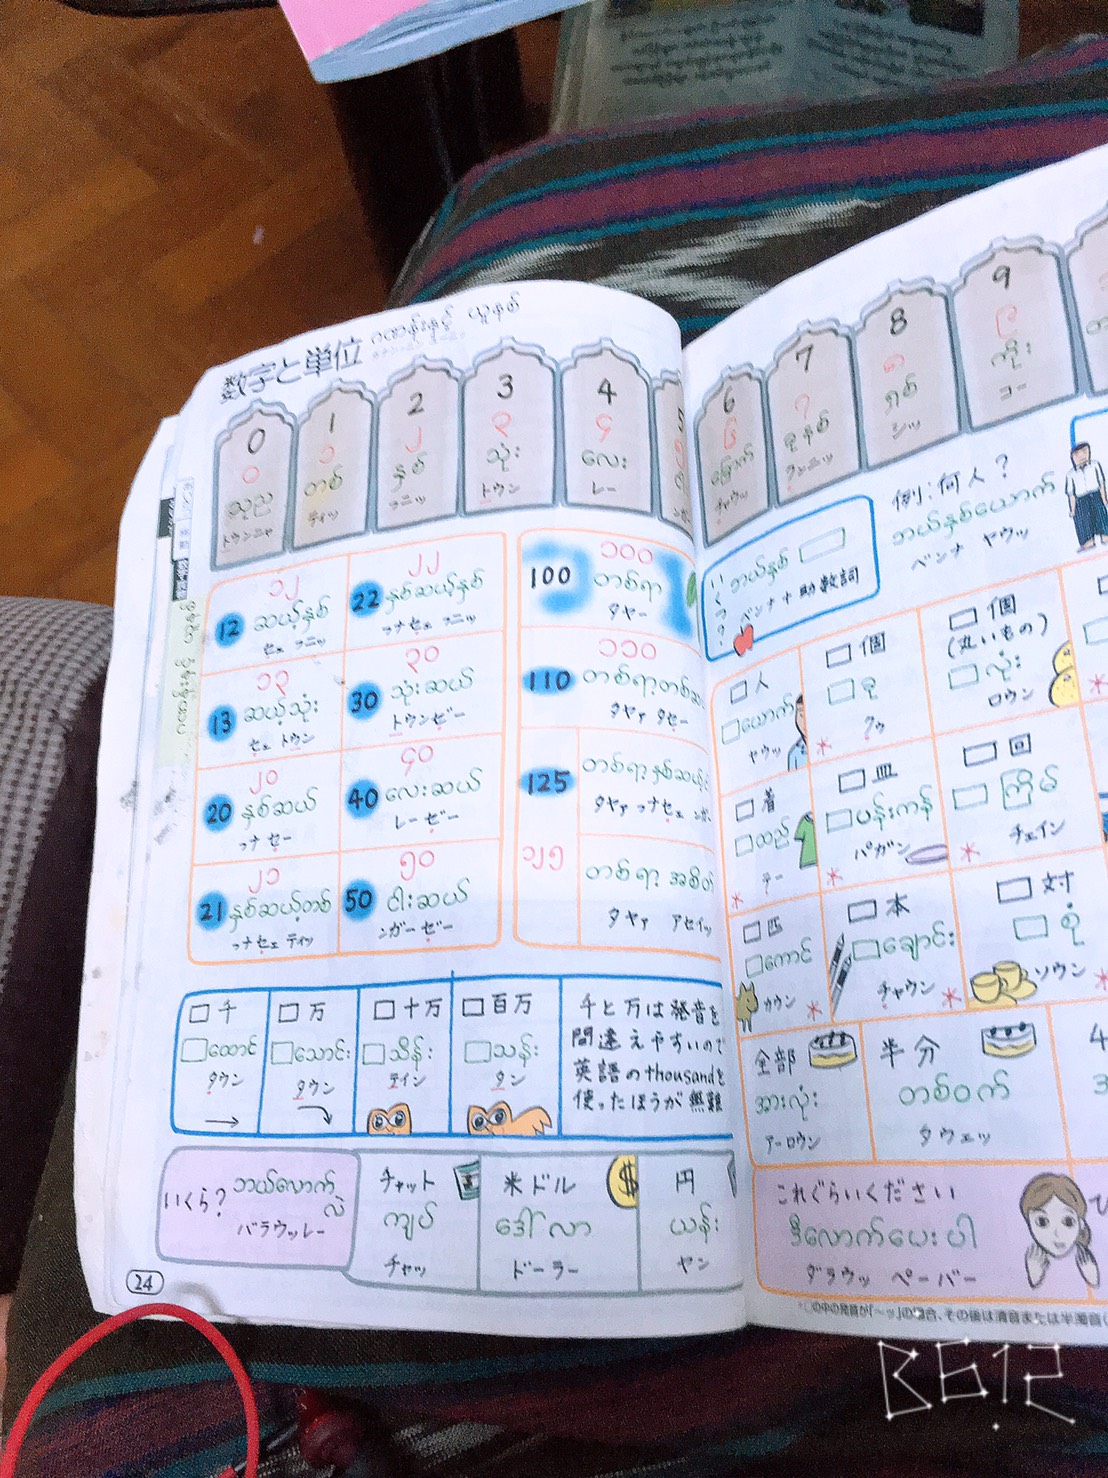 数字と単位
ဂဏန်းနှင့် ယူနစ်
0
၀
သုည
トウンニャ
1
၁
တစ်
ティッ
2
၂
နှစ်
フニッ
3
၃
သုံး
トウン
4
၄
လေး
レー
5
6
၆
ခြောက်
チャウッ
7
၇
ခုနစ်
クンニッ
8
၈
ရှစ်
シッ
9
၉
ကိုး
コー
၁၂
12 ဆယ့်နှစ်
セェ フニッ
၂၂
22 နှစ်ဆယ့်နှစ်
フナセェ フニッ
၁၃
13 ဆယ့်သုံး
セェ トウン
၃၀
30 သုံးဆယ်
トウンゼー
၂၀
20 နှစ်ဆယ်
フナセー
၄၀
40 လေးဆယ်
レーゼー
၂၁
21 နှစ်ဆယ့်တစ်
フナセェ ティッ
၅၀
50 ငါးဆယ်
ンガーゼー
၁၀၀
100 တစ်ရာ
タヤー
၁၁၀
110
タヤァ タセー
125
タヤァ フナセェ
၁၂၅
တစ်ရာ့
タヤァ アセイッ
□千
□ထောင်
タウン
□万
□သောင်း
タウン
□十万
□သိန်း
テイン
□百万
□သန်း
タン
千と万は発音を
間違えやすいので
英語のthousandを
使ったほうが無難
いくら?
ဘယ်လောက်လဲ
バラウッレー
チャット
ကျပ်
チャッ
米ドル
ဒေါ်လာ
ドーラー
円
ယန်း
ヤン
24
いくつ?
ဘယ်နှစ် □
ベンナ+助数詞
例:何人?
ဘယ်နှစ်ယောက်
ベンナ ヤウッ
□人
□ယောက်
ヤウッ
□個
□ခု
クゥ
□個
(丸いもの)
□လုံး
ロウン
□着
□ထည်
テー
□皿
□ပန်းကန်
パガン
□回
□ကြိမ်
チェイン
□匹
□ကောင်
カウン
□本
□ချောင်း
チャウン
□対
□စုံ
ソウン
全部
အားလုံး
アーロウン
半分
တစ်ဝက်
タウェッ
これぐらいください
ဒီလောက်ပေးပါ
ダラウッ ペーバー
*○の中の発音が「〜ッ」の場合、その後は清音または半濁音
B612